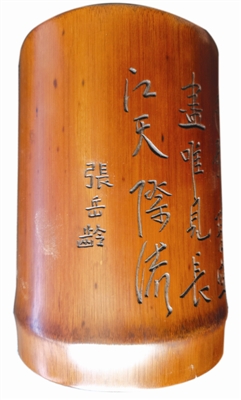 盡唯見長
江天際流
張岳齡